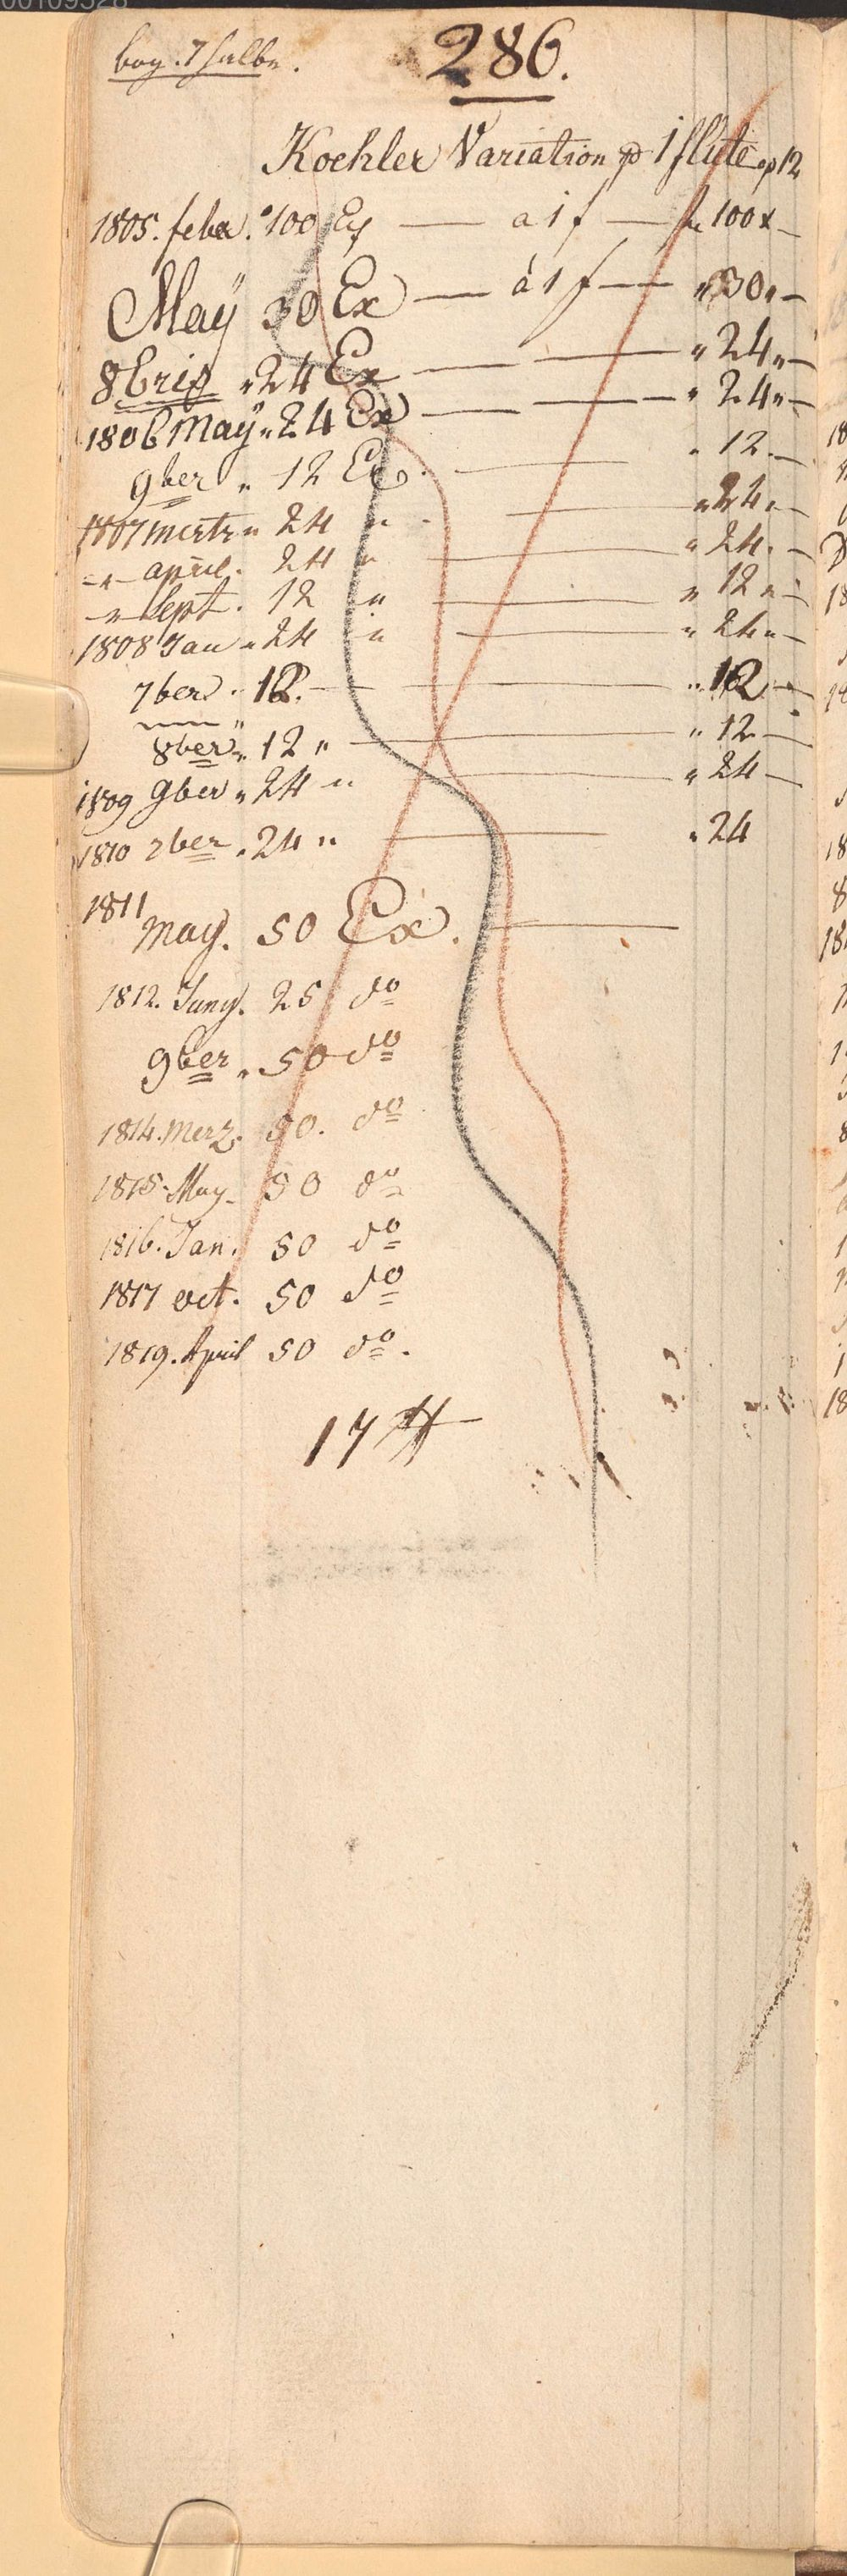 bog. 7 halbe.
286.
Koehler Variation p 1 flute op 12
1805. feber. 100 Ex — a 1 f — f 100 x —
Maÿ 30 Ex — á 1 f — " 30 " —
8bris " 24 Ex — — " 24 " —
1806 Maÿ " 24 Ex — — " 24 " —
9ber " 12 Ex — " 12 . —
1807 mertz " 24 " — " 24 " —
-"- april . 24 " — " 24 . —
-"- Sept . 12 " — " 12 " —
1808 Jan " 24 " — " 24 " —
7ber . 12. — — " 12 —
8ber " 12 " — " 12 —
1809 9ber " 24 " — " 24 —
1810 7ber . 24 " — " 24
1811
May. 50 Ex. —
1812. Juny. 25 do
9ber . 50 do
1814. Merz. 50. do
1815. May. 50 do
1816. Jan. 50 do
1817 oct. 50 do
1819. April 50 do.
17